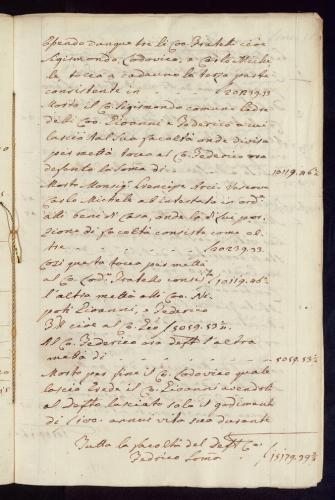 Essendo dunque tre li Co: Fratelli cioè
Sigismondo, Lodovico, e Carlo Miche
le tocca a cadauno la terza parte
consistente in - - - 20239.33
Morto il Co: Sigismondo comune Padre
delli Co: Giovanni e Federico a cui
lasciò tal sua facoltà onde divisa
per mettà tocca al Co: Federico ora
defonto la soma di - - - 10119.46½
Morto Monsigr Arci
Carlo Michele ab intestato in ord
alli beni di Casa, onde la di Lui por
zione di facoltà consiste come ol
tre - - - 20239.33
Così questa tocca per mettà
al Co: Fratello consiste 10119.46½
l'altra mettà alli Co: Ne
poti Giovanni, e Federico
cioè al Co: 5059.53¼
Al Co: Federico ora defto l'altra
metà di - - - 5059.53¼
Morto per fine il Co: Lodovico quale
lasciò Erede il Co: Giovanni avendoli
al defto lasciato solo il godimento
di annui vita sua durante
Tutta la facoltà del defto Co:
Federico Soma 15179.99¾